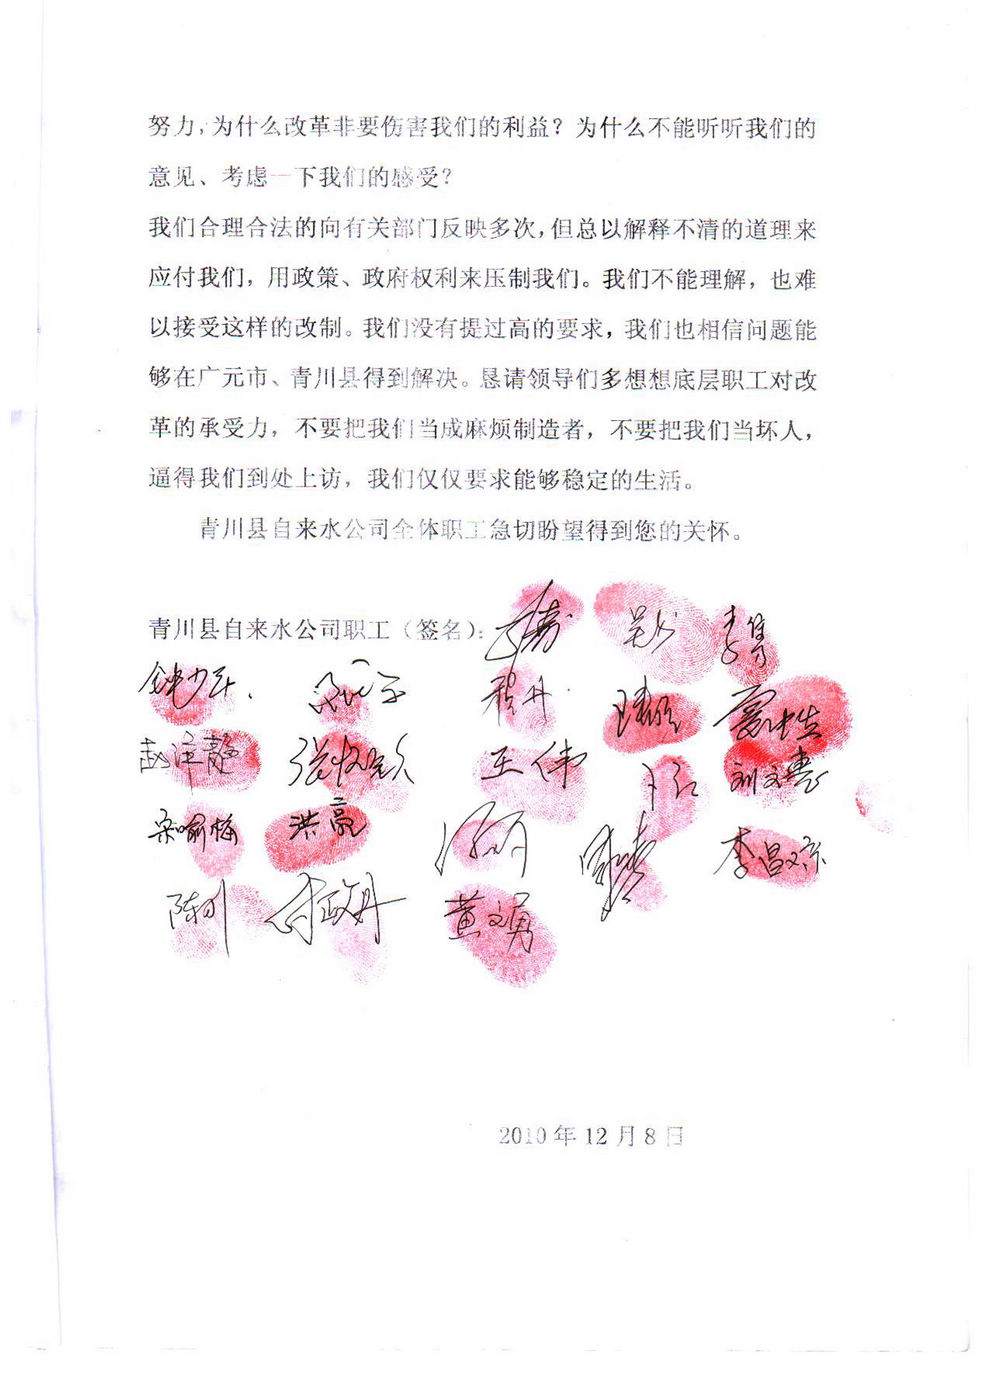 努力，为什么改革非要伤害我们的利益？为什么不能听听我们的
意见、考虑一下我们的感受？
我们合理合法的向有关部门反映多次，但总以解释不清的道理来
应付我们，用政策、政府权利来压制我们。我们不能理解，也难
以接受这样的改制。我们没有提过高的要求，我们也相信问题能
够在广元市、青川县得到解决。恳请领导们多想想底层职工对改
革的承受力，不要把我们当成麻烦制造者，不要把我们当坏人，
逼得我们到处上访，我们仅仅要求能够稳定的生活。
青川县自来水公司全体职工急切盼望得到您的关怀。
青川县自来水公司职工（签名）：
程丹
王伟
刘文春
宋喻梅 洪亮
李昌文
陈 黄文勇
2010年12月8日